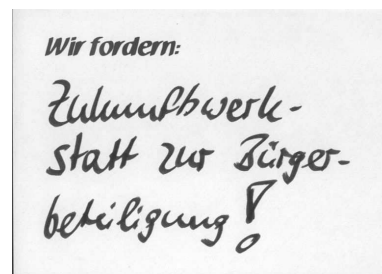 Wir fordern:
Zukunftswerk-
statt zur Bürger-
beteiligung!